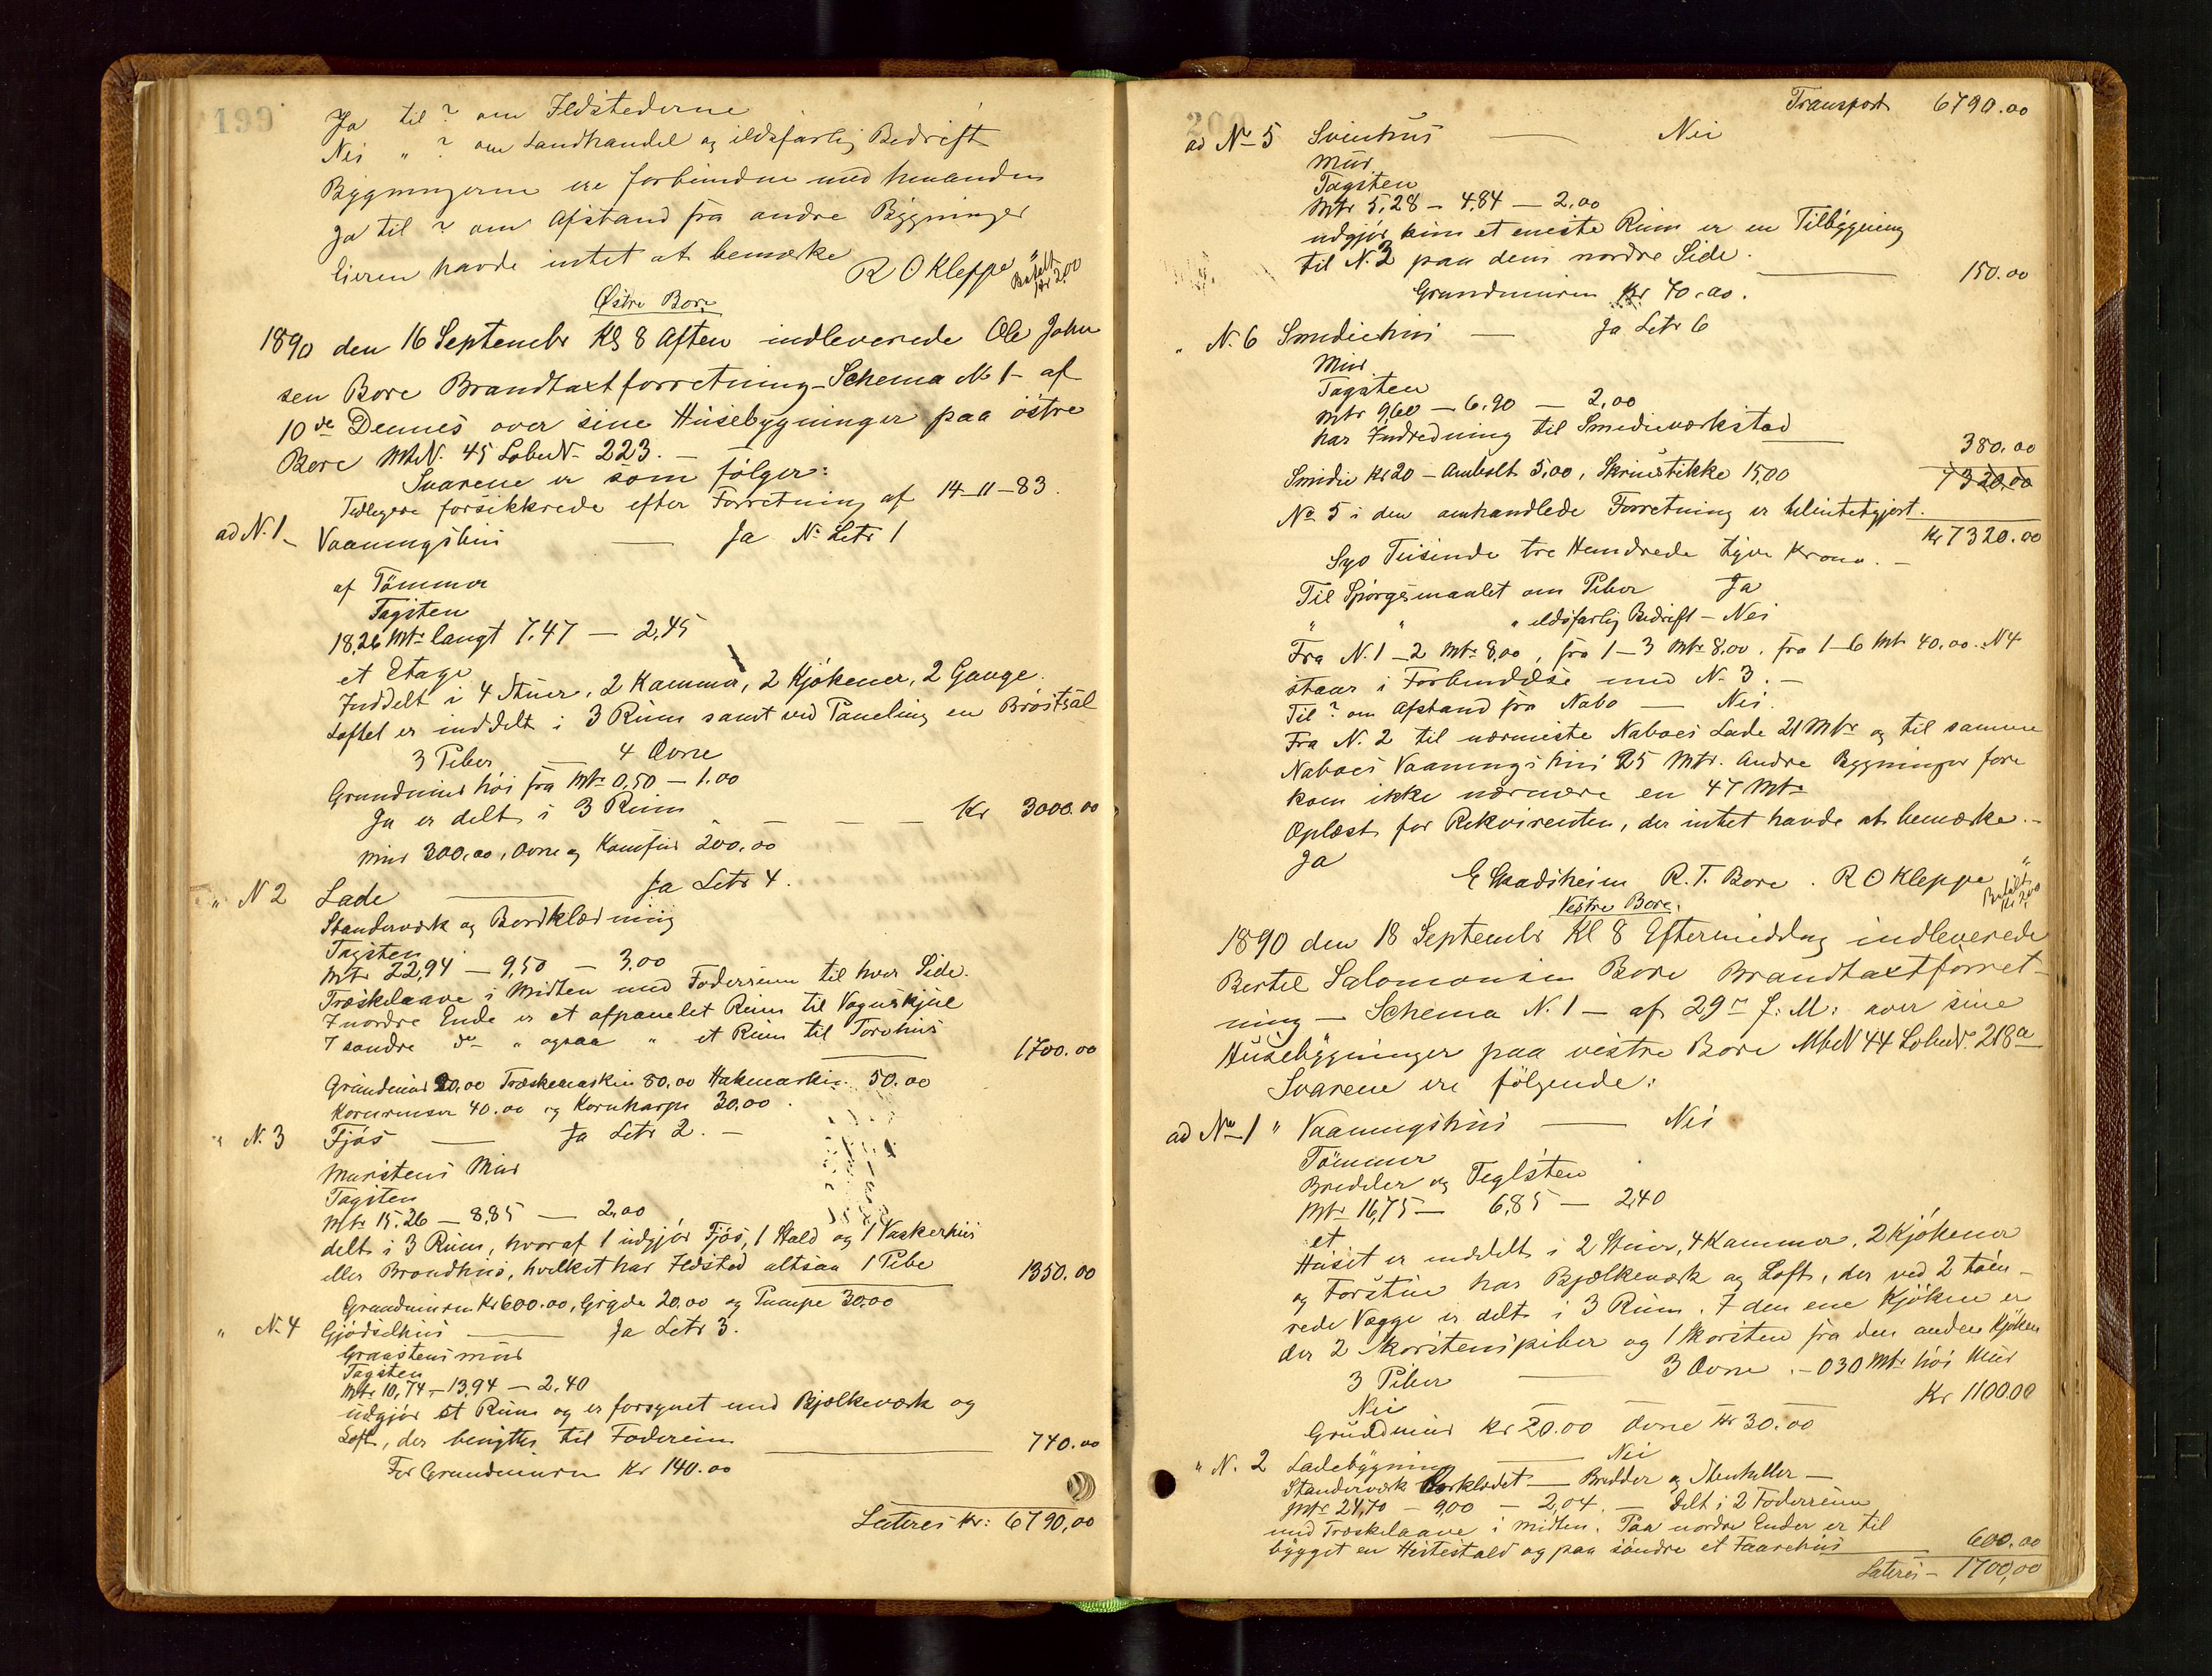 199
Ja til ? om Ildstederne
Nei " ? om Landhandel og ildsfarlig Bedrift
Bygningerne ere forbundne med hinanden
Ja til ? om Afstand fra andre Bygninger
Eieren havde intet at bemærke
R O Kleppe
Betalt
Kr 2,00
Østre Bore
1890 den 16 Septembr Kl 8 Aften indleverede Ole John
sen Bore Brandtaxtforretning - Schema No 1 - af
10de Dennes over sine Husebygninger paa østre
Bore MNo. 45 LøbeNo 223. —
Svarene er som følger:
Tidligere forsikkrede efter Forretning af 14-11-83.
ad N. 1 - Vaaningshus — Ja No Litr 1
af Tömmer
Tagsten
18,26 Mtr langt 7,47 — 2,45
et Etage
Inddelt i 4 Stuer, 2 Kammer, 2 Kjøkener, 2 Gange.
Loftet er inddelt i 3 Rum samt ved Paneling en Bröstsal
3 Piber — 4 Ovne
Grundmur høi fra Mtr 0,50 — 1.00
Ja er delt i 3 Rum — — — Kr 3000.00
Mur 300,00, Ovne og Komfur 200.00
" N 2 Lade — Ja Litr 4.
Standerværk og Bordklædning
Tagsten
Mtr 22,94 — 9,50 — 3,00
Træskelaave i Midten med Foderrum til hver Side.
I nordre Ende er et afpanelet Rum til Vognskjul
I søndre do " ogsaa " et Rum til Torvhus
1700.00
Grundmur 20,00 Træskemaskin 80.00 Hakmaskin 50.00
Kornrenser 40.00 og Kornharpe 30.00.
" N. 3 Fjös — Ja Litr 2. —
Murstens Mur
Tagsten
Mtr 15.26 — 8,85 — 2,00
delt i 3 Rum, hvoraf 1 udgjør Fjös, 1 Stald og 1 Vaskerhus
eller Brondhus, hvilket har Ildsted altsaa 1 Pibe
1350.00
Grundmuren Kr 600.00, Gryde 20.00 og Pumpe 30.00
" N. 4 Gjødselhus — Ja Litr 3.
Graastensmur
Tagsten
Mtr 10,74 — 13,94 — 2,40
udgjør et Rum og er forsynet med Bjælkeværk og
Loft, der benyttes til Foderrum — 740.00
For Grundmuren Kr 140.00
Lateres Kr: 6790,00
200
Transport 6790.00
ad No 5 Svinhus — Nei
Mur
Tagsten
Mtr 5,28 — 4,84 — 2,00
udgjør kun et eneste Rum er en Tilbygning
til N. 2 paa dens nordre Side. — 150.00
Grundmuren Kr 40.00.
" N. 6 Smediehus — Ja Litr 6
Mur
Tagsten
Mtr 9,60 — 6,90 — 2,00
har Indredning til Smedieværksted — 380.00
Smidie Kr 20 — Ambolt 5,00, Skruestikke 15,00
7320,00
No 5 i den omhandlede Forretning er tilintetgjort.
Kr 7320.00
Syv Tusinde tre Hundrede tyve Kroner. —
Til Spørgsmaalet om Piber Ja
" " " ildsfarlig Bedrift — Nei
Fra N. 1 — 2 Mtr 8,00, fra 1 — 3 Mtr 8,00. fra 1 — 6 Mtr 40.00. N 4
staar i Forbindelse med N. 3. —
Til ? om Afstand fra Nabo — Nei.
Fra N. 2 til nærmeste Naboes Lade 21 Mtr og til samme
Naboes Vaaningshus 25 Mtr. Andre Bygninger fore
kom ikke nærmere en 47 Mtr
Oplæst for Rekvirenten, der intet havde at bemærke. —
Ja
R. T. Bore. R O Kleppe
Betalt
Kr 2,00
Vestre Bore.
1890 den 18 Septembr Kl 8 Eftermiddag indleverede
Bertel Salomonsen Bore Brandtaxtforret-
ning — Schema N. 1 — af 29de f. M: over sine
Husebygninger paa vestre Bore MNo 44 LøbeNo. 218a
Svarene ere følgende:
ad No 1 " Vaaningshus — Nei
Tømmer
Bredeler og Teglsten
Mtr 16,75 — 6,85 — 2,40
et
Huset er inddelt i 2 Stuer, 4 Kammer, 2 Kjøkener
og Forstue har Bjælkeværk og Loft, der ved 2
rede Vægge er delt i 3 Rum. I den ene Kjøken er
der 2 Skorstenspiber og 1 Skorsten fra den anden Kjøken
3 Piber — 3 Ovne. — 030 Mtr høi Mur
Nei — — — Kr 1100.00
Grundmur Kr 20.00 Ovne Kr 30.00
" N. 2 Ladebygning — Nei
Standerværk Bordklædet — Bredder og Stenheller —
Mtr 24,70 — 9,00 — 2,04. — Delt i 2 Foderrum
med Træskelaave i Midten. Paa nordre Ender er til
bygget en Hestestald og paa søndre et Faarehus — 600.00
Lateres — 1700,00